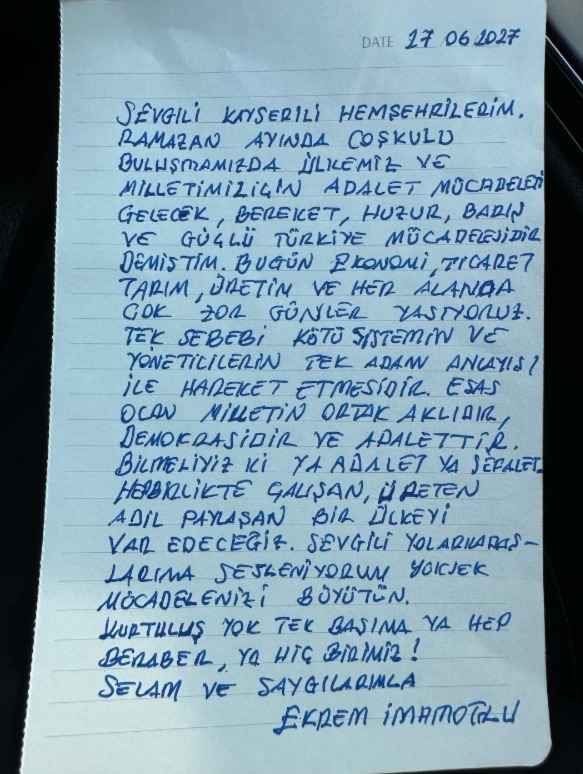 DATE 27/06/2027
SEVGİLİ KAYSERİLİ HEMŞEHRİLERİM.
RAMAZAN AYINDA COŞKULU
BULUŞMAMIZDA ÜLKEMİZ VE
MİLLETİMİZ İÇİN ADALET MÜCADELESİ
GELECEK, BEREKET, HUZUR, BARIŞ
VE GÜÇLÜ TÜRKİYE MÜCADELESİDİR
DEMİŞTİM. BUGÜN EKONOMİ, TİCARET
TARIM, ÜRETİM VE HER ALANDA
ÇOK ZOR GÜNLER YAŞIYORUZ.
TEK SEBEBİ KÖTÜ SİSTEMİN VE
YÖNETİCİLERİN TEK ADAM ANLAYIŞI
İLE HAREKET ETMESİDİR. ESAS
OLAN MİLLETİN ORTAK AKLIDIR,
DEMOKRASİDİR VE ADALETTİR.
BİLMELİYİZ Kİ YA ADALET YA SEFALET.
HEP BİRLİKTE ÇALIŞAN, ÜRETEN
ADİL PAYLAŞAN BİR ÜLKEYİ
VAR EDECEĞİZ. SEVGİLİ YOL ARKADAŞ-
LARIMA SESLENİYORUM YÜKSEK
MÜCADELENİZİ BÜYÜTÜN.
KURTULUŞ YOK TEK BAŞINA YA HEP
BERABER, YA HİÇ BİRİMİZ!
SELAM VE SAYGILARIMLA
EKREM İMAMOĞLU